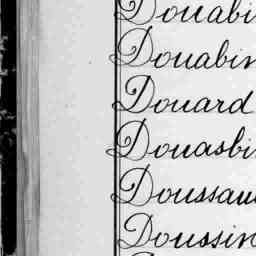 Douabi
Douabin
Douard
Douasbi
Doussau
Doussin